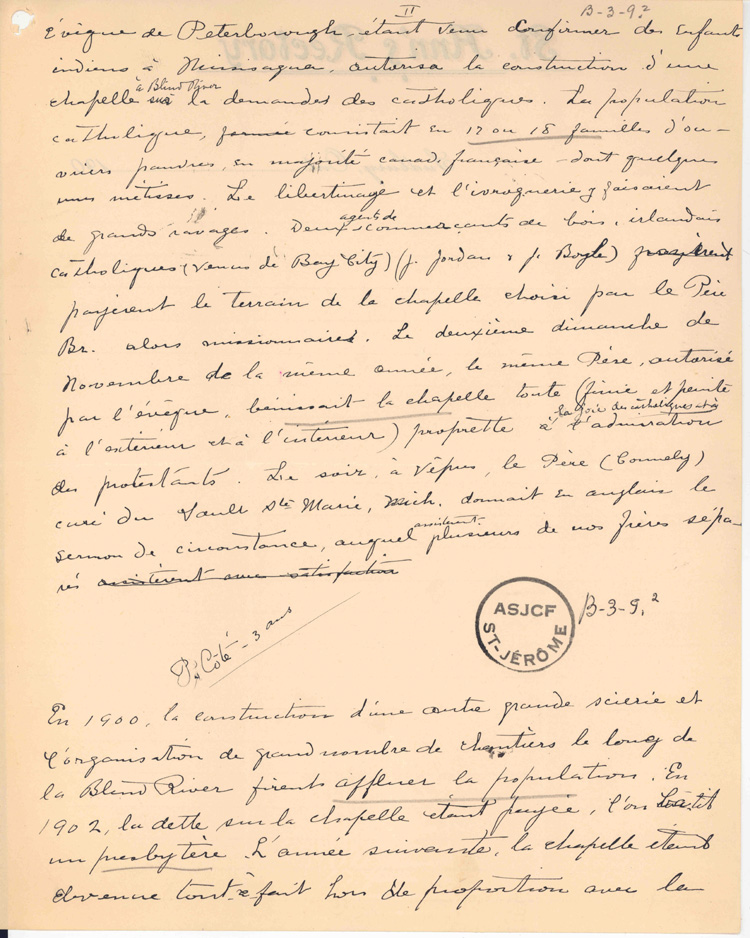 II
B-3-9.2
évêque de Peterborough, étant venu confirmer des enfants
indiens à Missisagua, autorisa la construction d'une
à Blind River
chapelle sur la demande des catholiques. La population
catholique, formée consistait en 17 ou 18 familles d'ou-
vriers pauvres, en majorité canad. française - dont quelques
unes métisses. Le libertinage et l'ivrognerie y faisaient
agents de
de grands ravages. Deux commerçants de bois, irlandais
catholiques (venus de Bay City) (J. Jordan & J. Bogle) payèrent
payèrent le terrain de la chapelle choisi par le Père
Br. alors missionnaire. Le deuxième dimanche de
Novembre de la même année, le même Père, autorisé
par l'évêque, bénissait la chapelle toute (finie et peinte
la joie des catholiques et à
à l'extérieur et à l'intérieur) proprette à l'admiration
des protestants. Le soir, à Vêpres, le Père (Connely)
curé du Sault Ste Marie, Mich. donnait en anglais le
assistèrent
sermon de circonstance, auquel plusieurs de nos frères sépa-
rés assistèrent avec satisfaction
ASJCF
ST-JÉRÔME
B-3-9.2
P. Côté - 3 ans
En 1900, la construction d'une autre grande scierie et
l'organisation de grand nombre de chantiers le long de
la Blind River firent affluer la population. En
1902, la dette sur la chapelle étant payée, l'on bâtit
un presbytère. L'année suivante, la chapelle étant
devenue tout-à-fait hors de proportion avec la